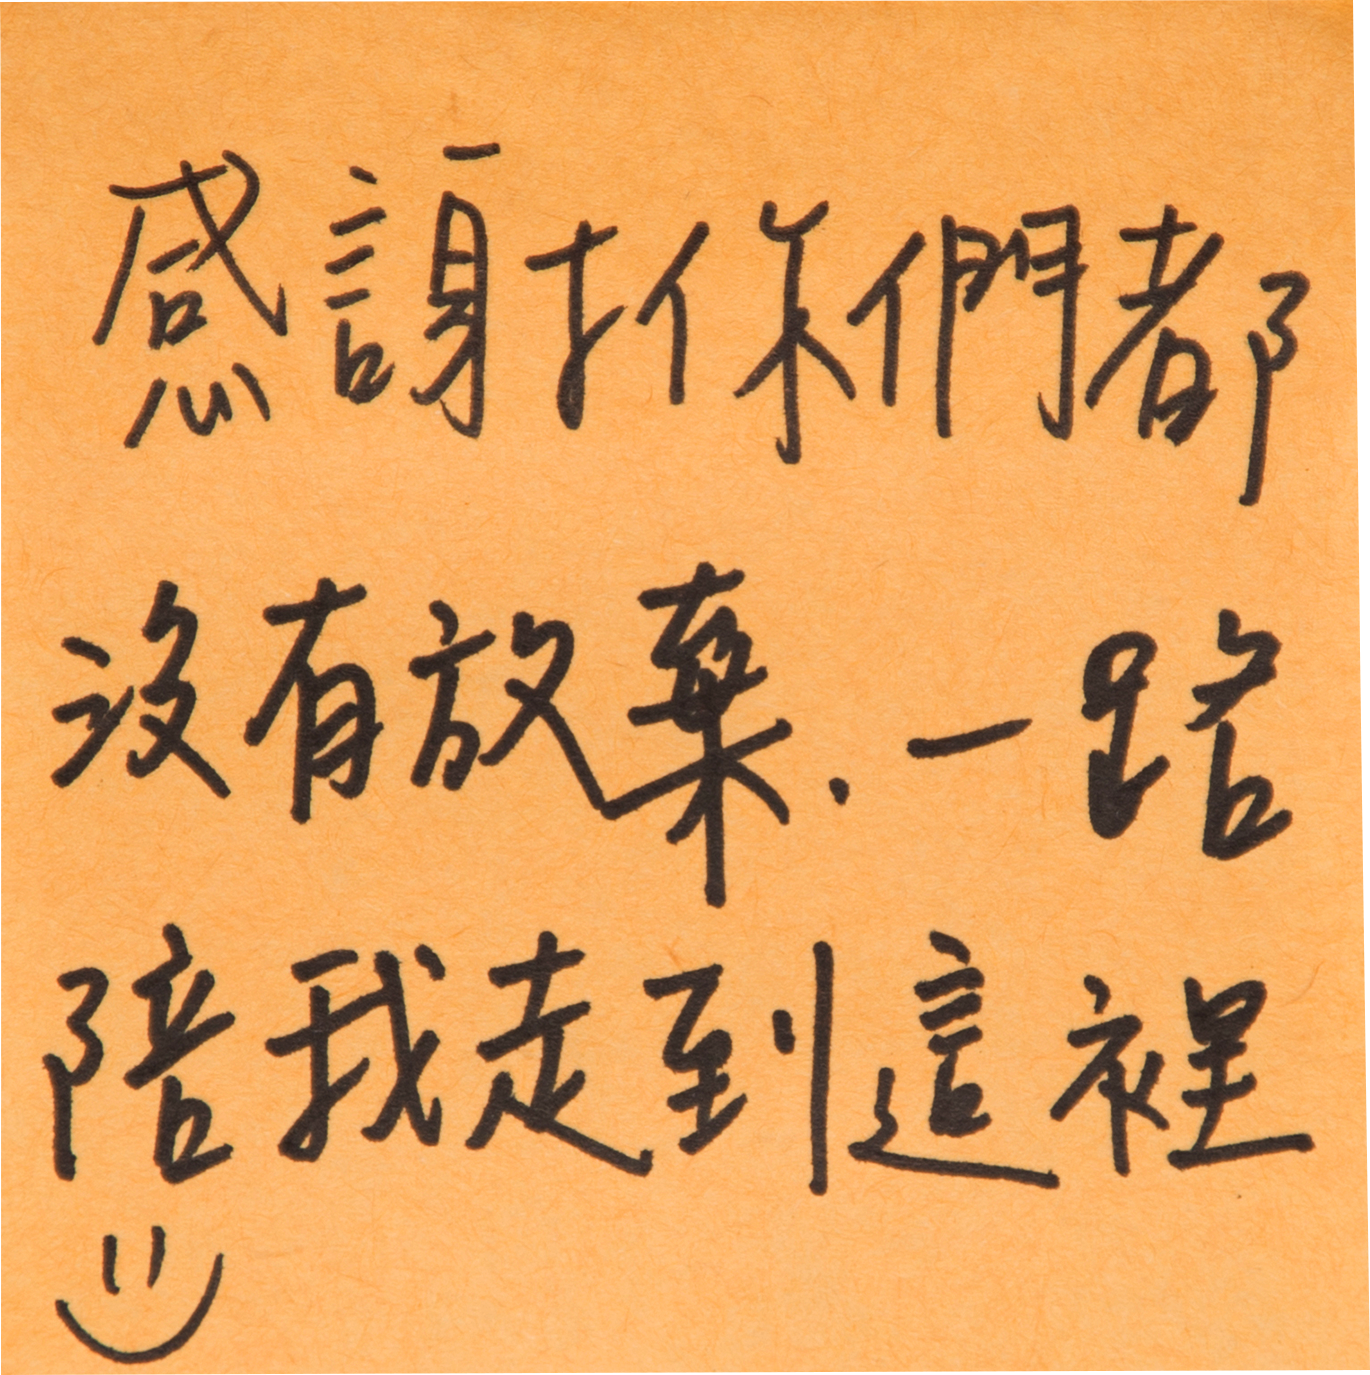 感謝你們都
沒有放棄.一路
陪我走到這裡